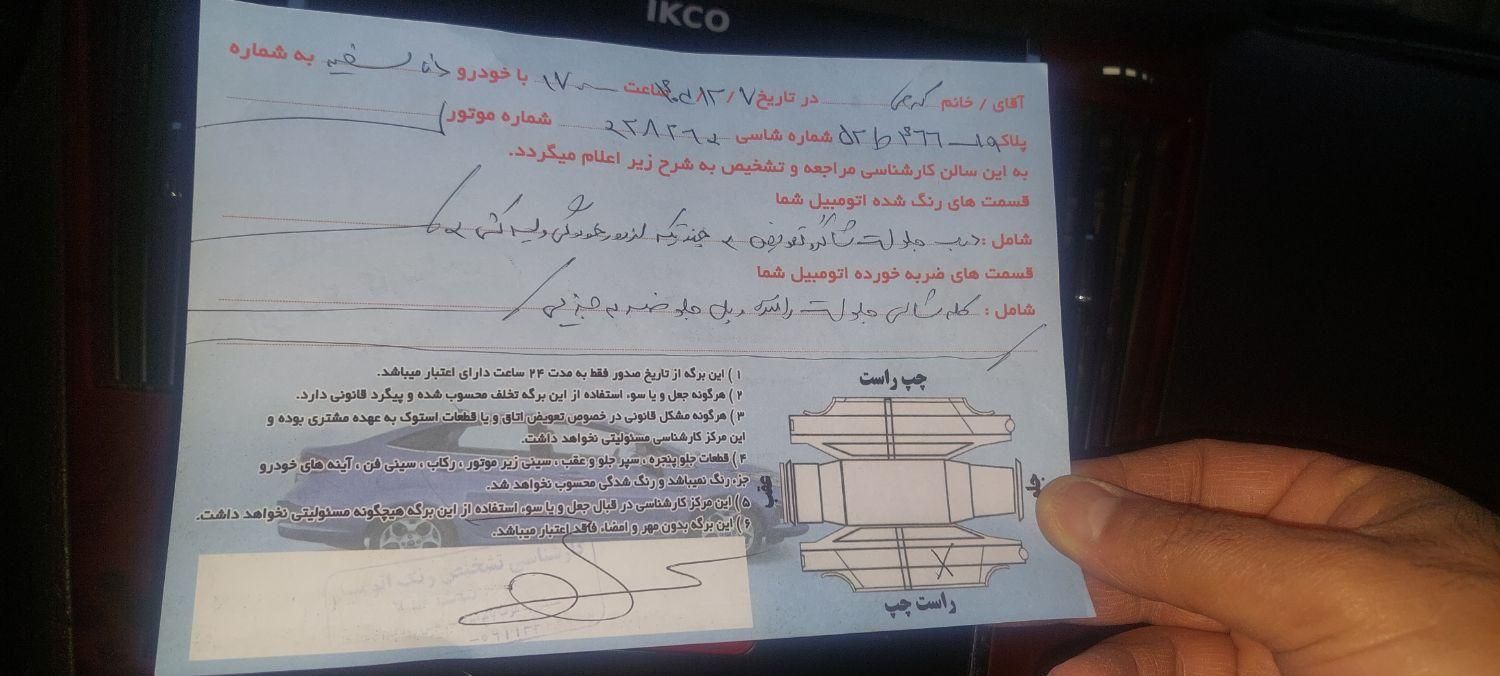 IKCO
آقای / خانم کرمی در تاریخ ۱۴۰۲/۱۲/۷ ساعت ۱۷ با خودرو دنا سفید به شماره
پلاک شماره شاسی شماره موتور
به این سالن کارشناسی مراجعه و تشخیص به شرح زیر اعلام میگردد.
قسمت های رنگ شده اتومبیل شما
شامل : درب جلو سمت شاگرد تعویض و چند تیکه لیسه گیری
قسمت های ضربه خورده اتومبیل شما
شامل : کله شاسی جلو سمت راننده جلو ضربه جزیی
۱ ) این برگه از تاریخ صدور فقط به مدت ۲۴ ساعت دارای اعتبار میباشد.
۲ ) هرگونه جعل و یا سوء استفاده از این برگه تخلف محسوب شده و پیگرد قانونی دارد.
۳ ) هرگونه مشکل قانونی در خصوص تعویض اتاق و یا قطعات استوک به عهده مشتری بوده و
این مرکز کارشناسی مسئولیتی نخواهد داشت.
۴ ) قطعات جلو پنجره ، سپر جلو و عقب ، سینی زیر موتور ، رکاب ، سینی فن ، آینه های خودرو
جزء رنگ نمیباشد و رنگ شدگی محسوب نخواهد شد.
۵ ) این مرکز کارشناسی در قبال جعل و یا سوء استفاده از این برگه هیچگونه مسئولیتی نخواهد داشت.
۶ ) این برگه بدون مهر و امضاء فاقد اعتبار میباشد.
چپ راست
عقب
جلو
راست چپ
کارشناسی تشخیص رنگ اتومبیل